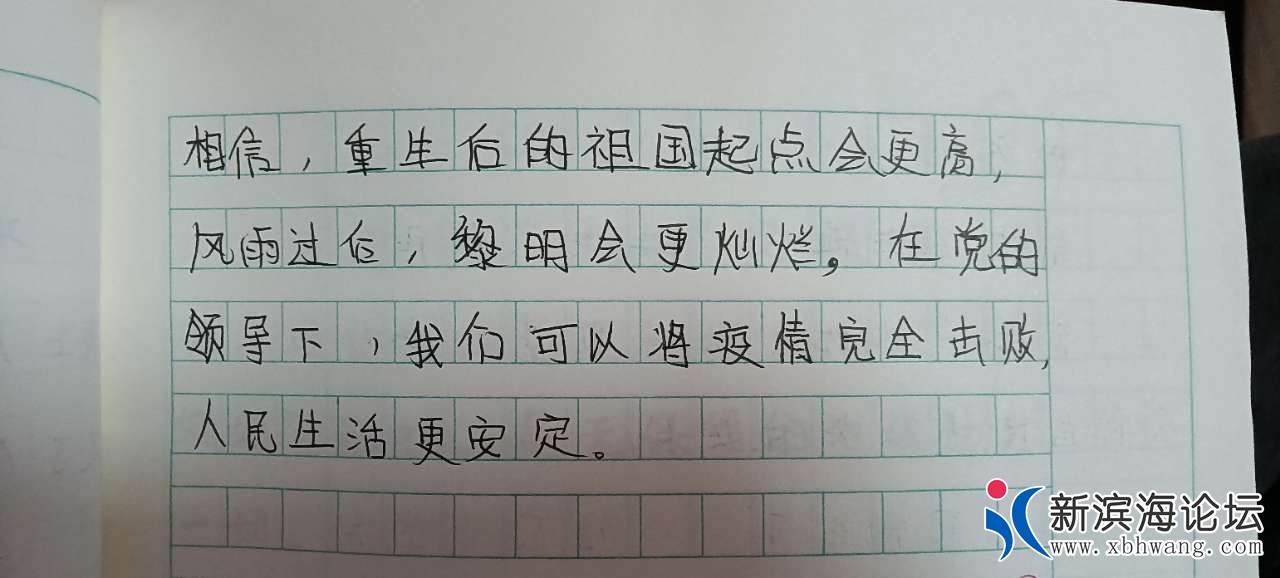 相信，重生后的祖国起点会更高，
风雨过后，黎明会更灿烂。在党的
领导下，我们可以将疫情完全击败，
人民生活更安定。
新滨海论坛
www.xbhwang.com